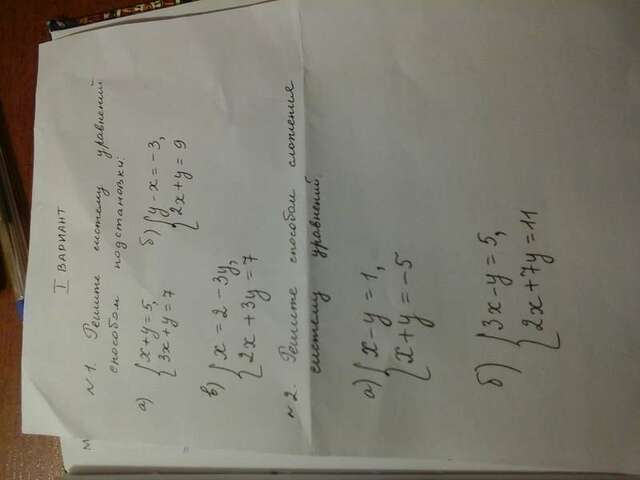 I ВАРИАНТ
№1. Решите систему уравнений
способом подстановки:
а) {x+y=5, 3x+y=7
б) {y-x=-3, 2x+y=9
в) {x=2-3y, 2x+3y=7
№2. Решите способом сложения
систему уравнений.
а) {x-y=1, x+y=-5
б) {3x-y=5, 2x+7y=11